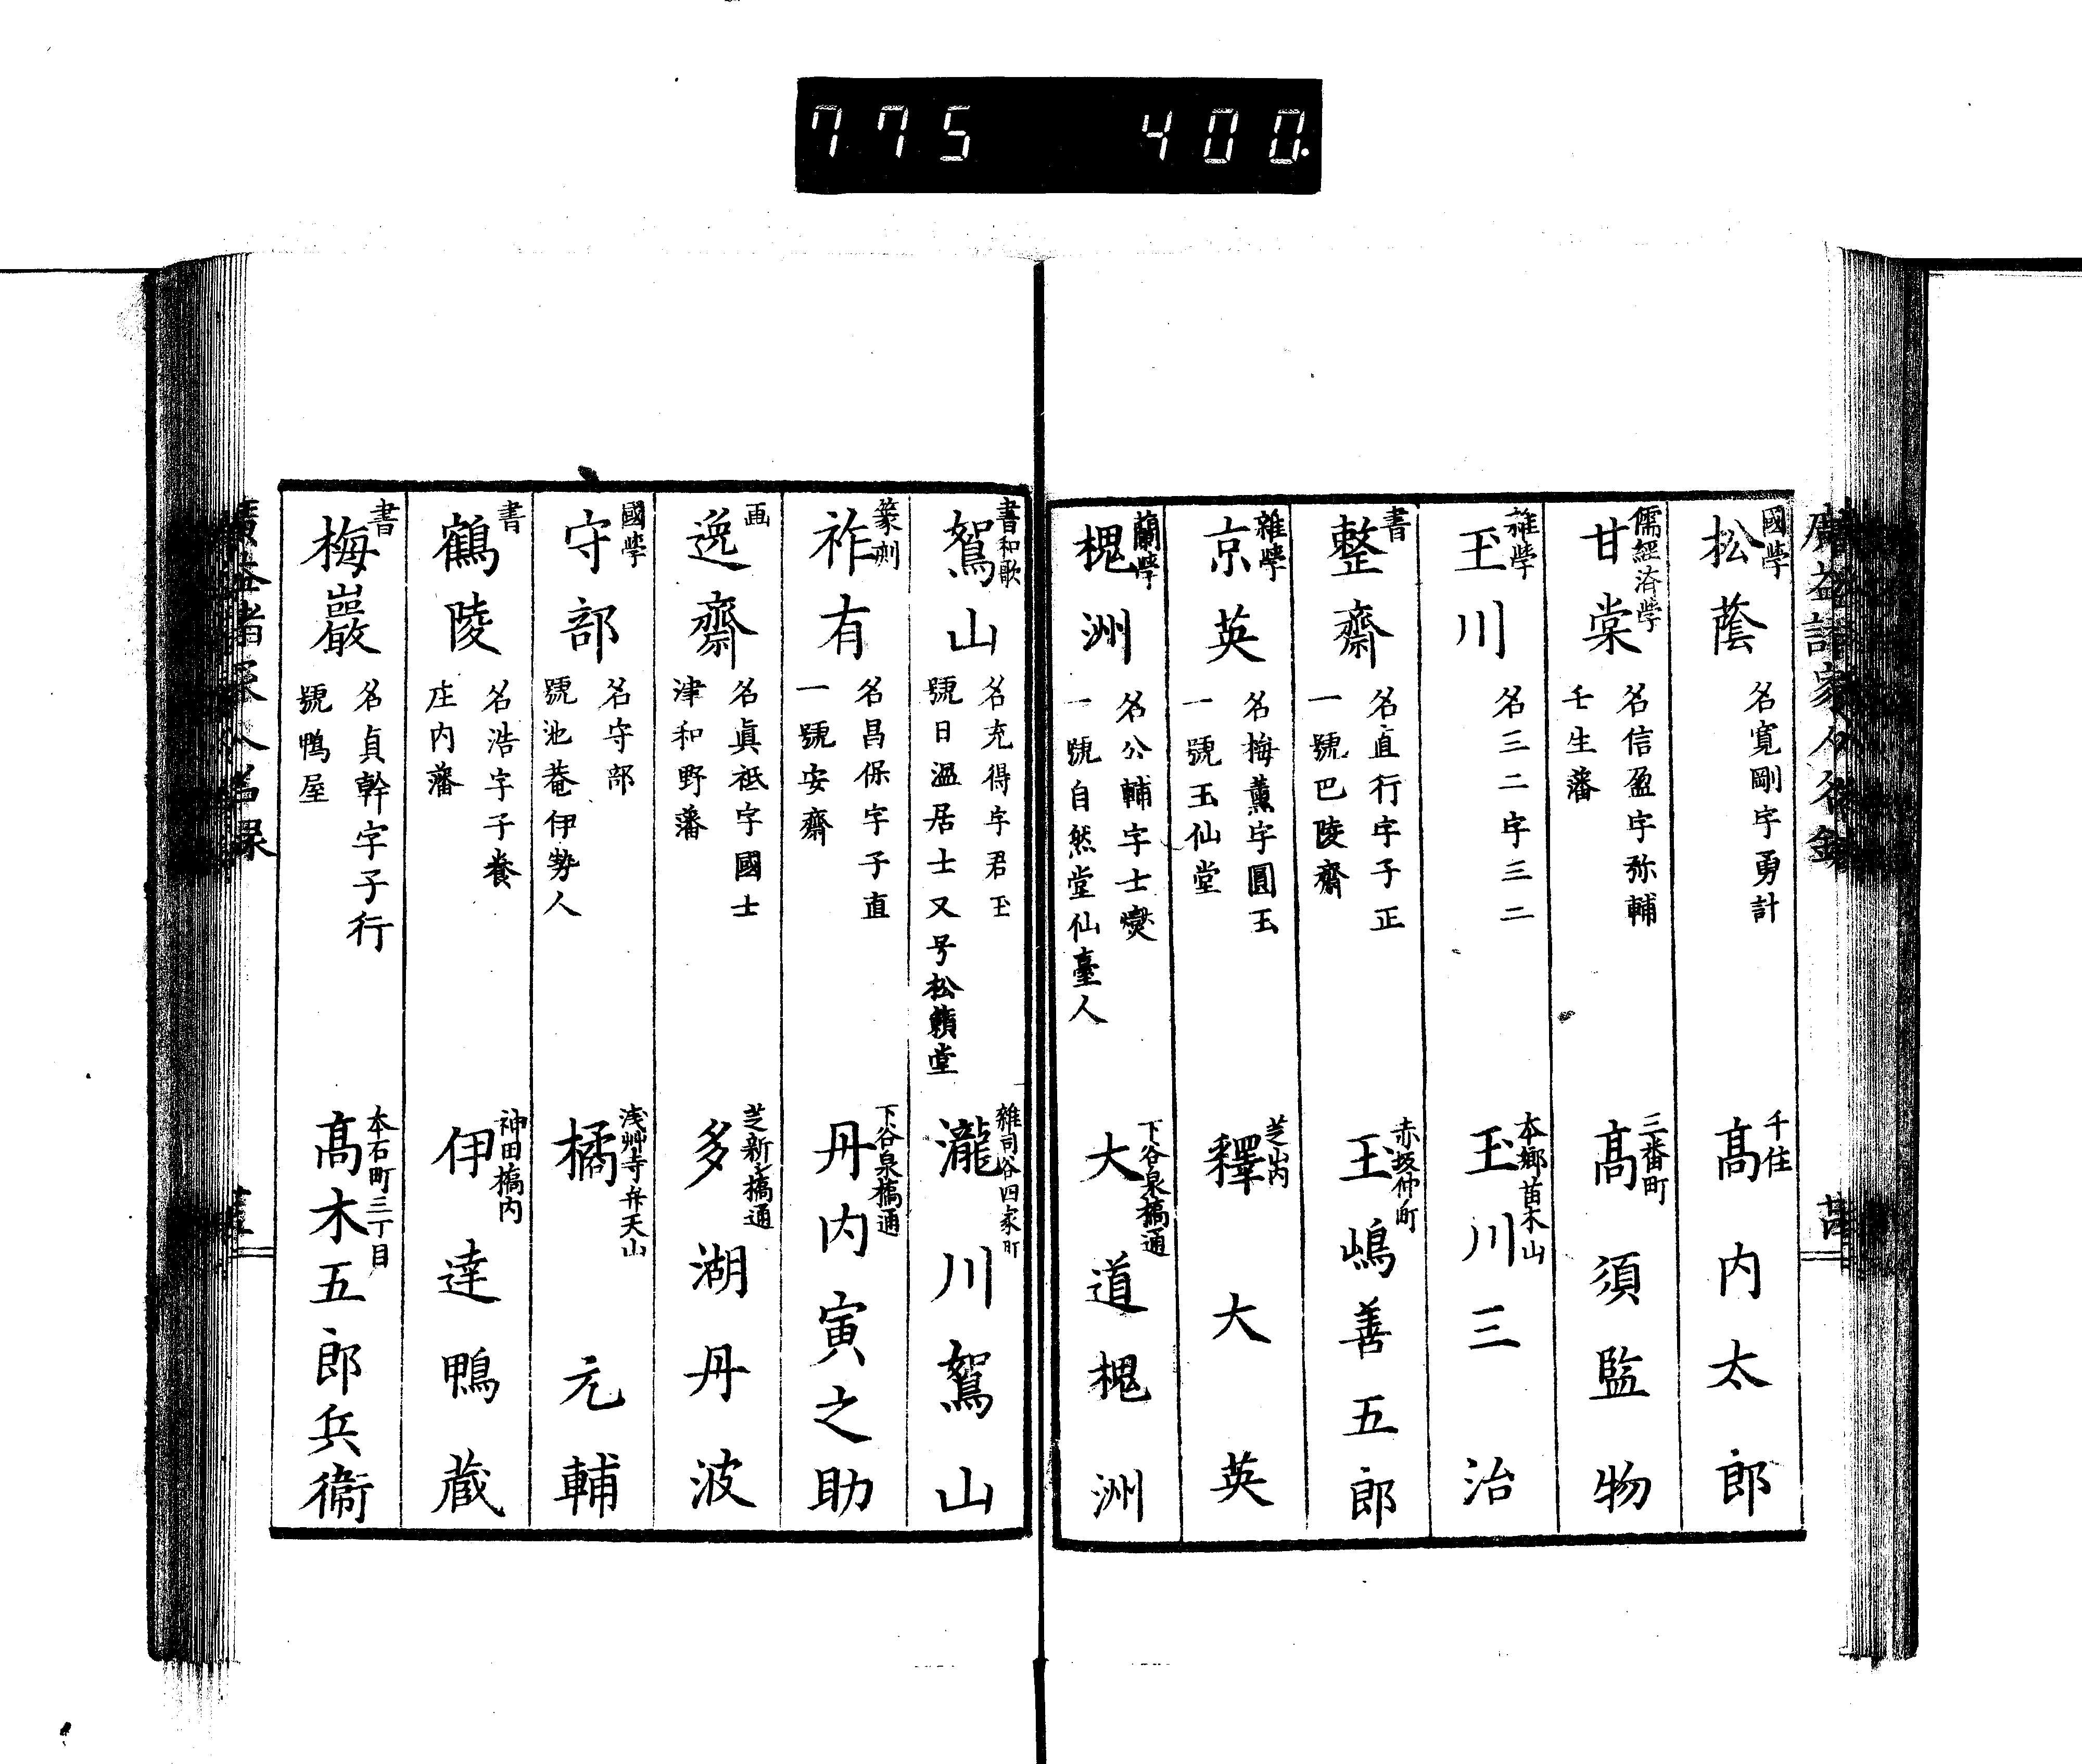 775 400.
廣益諸家人名録
國學
松蔭
名寛剛字勇計
千住
髙内太郎
儒經済學
甘棠
名信盈字弥輔
壬生藩
三番町
髙須監物
雑學
玉川
名三二字三二
本郷苗木山
玉川三治
書
整齋
名直行字子正
一號巴陵齋
赤坂仲町
王嶋善五郎
雜學
京英
名梅薫字圓玉
一號玉仙堂
芝山内
釋大英
蘭學
槐洲
名公輔字士爕
一號自然堂仙臺人
下谷泉橋通
大道槐洲
書和歌
鴛山
名充得字君玉
號日温居士又号松籟堂
雜司谷四家町
瀧川鴛山
篆刻
祚有
名昌保字子直
一號安齋
下谷泉橋通
丹内寅之助
画
逸齋
名眞祗字國士
津和野藩
芝新シ橋通
多湖丹波
國學
守部
名守部
號池菴伊勢人
浅艸寺弁天山
橘元輔
書
鶴陵
名浩字子養
庄内藩
神田橋内
伊達鴨蔵
書
梅巖
名貞幹字子行
號鴨屋
本石町三丁目
髙木五郎兵衞
廣益諸家人名録